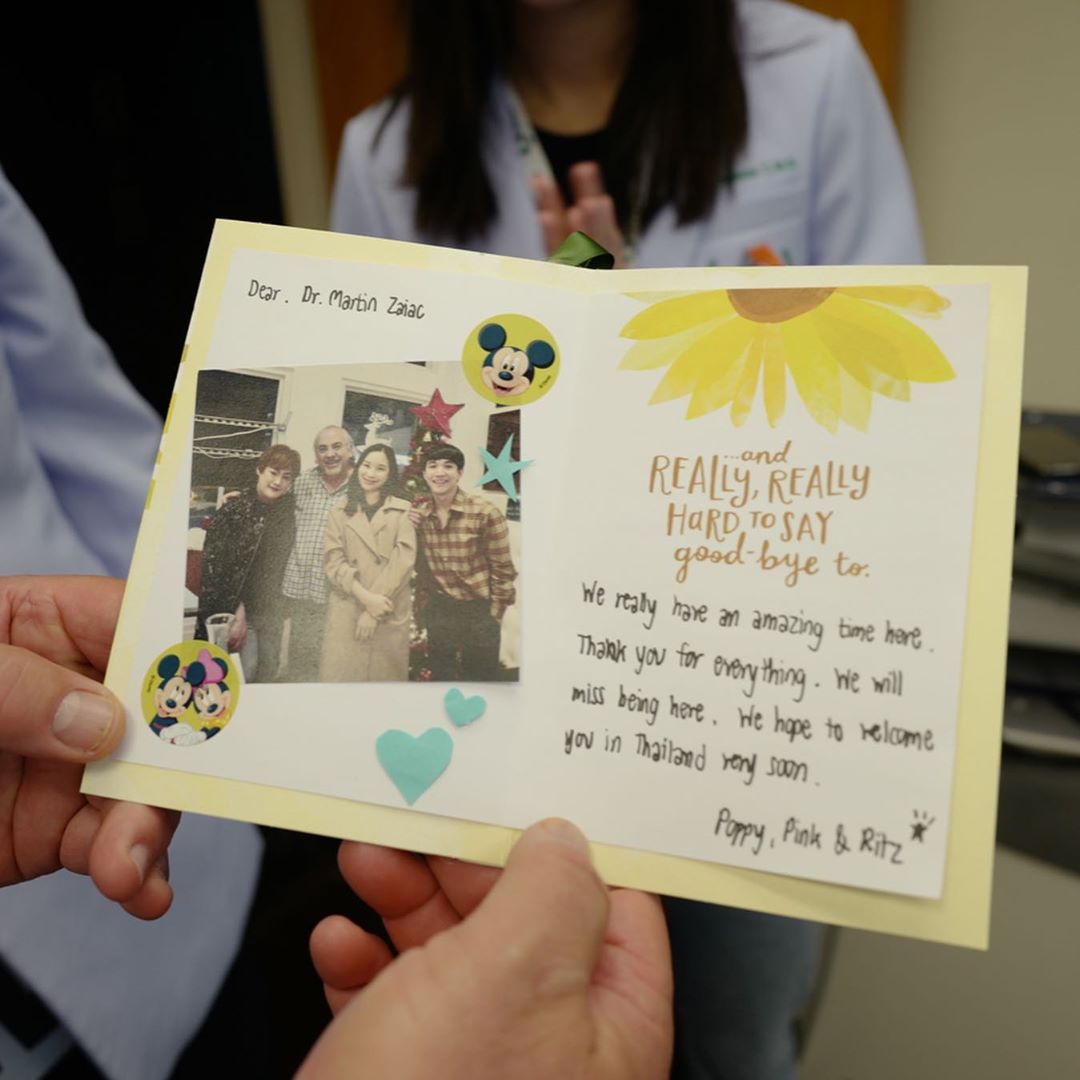 Dear. Dr. Martin Zaiac
...and
REALLY, REALLY
HARD TO SAY
good-bye to.
We really have an amazing time here.
Thank you for everything. We will
miss being here. We hope to welcome
you in Thailand very soon.
Poppy, Pink & Ritz